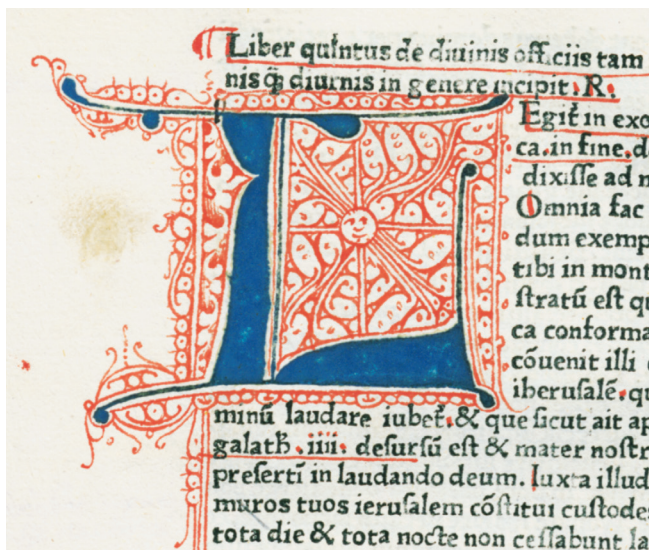 ¶ Liber quintus de diuinis officiis tam
nis q̄ diurnis in genere incipit. R.
L Egit̄ in exo
ca. in fine. d
dixisse ad m
Omnia fac
dum exemp
tibi in mont
stratū est qu
ca conforma
cōuenit illi
iherusalē. qu
minū laudare iubet̄. & que sicut ait ap
galath̄. iiii. desursū est & mater nostr
presertī in laudando deum. Iuxta illud
muros tuos ierusalem cōstitui custodes
tota die & tota nocte non cessabunt la